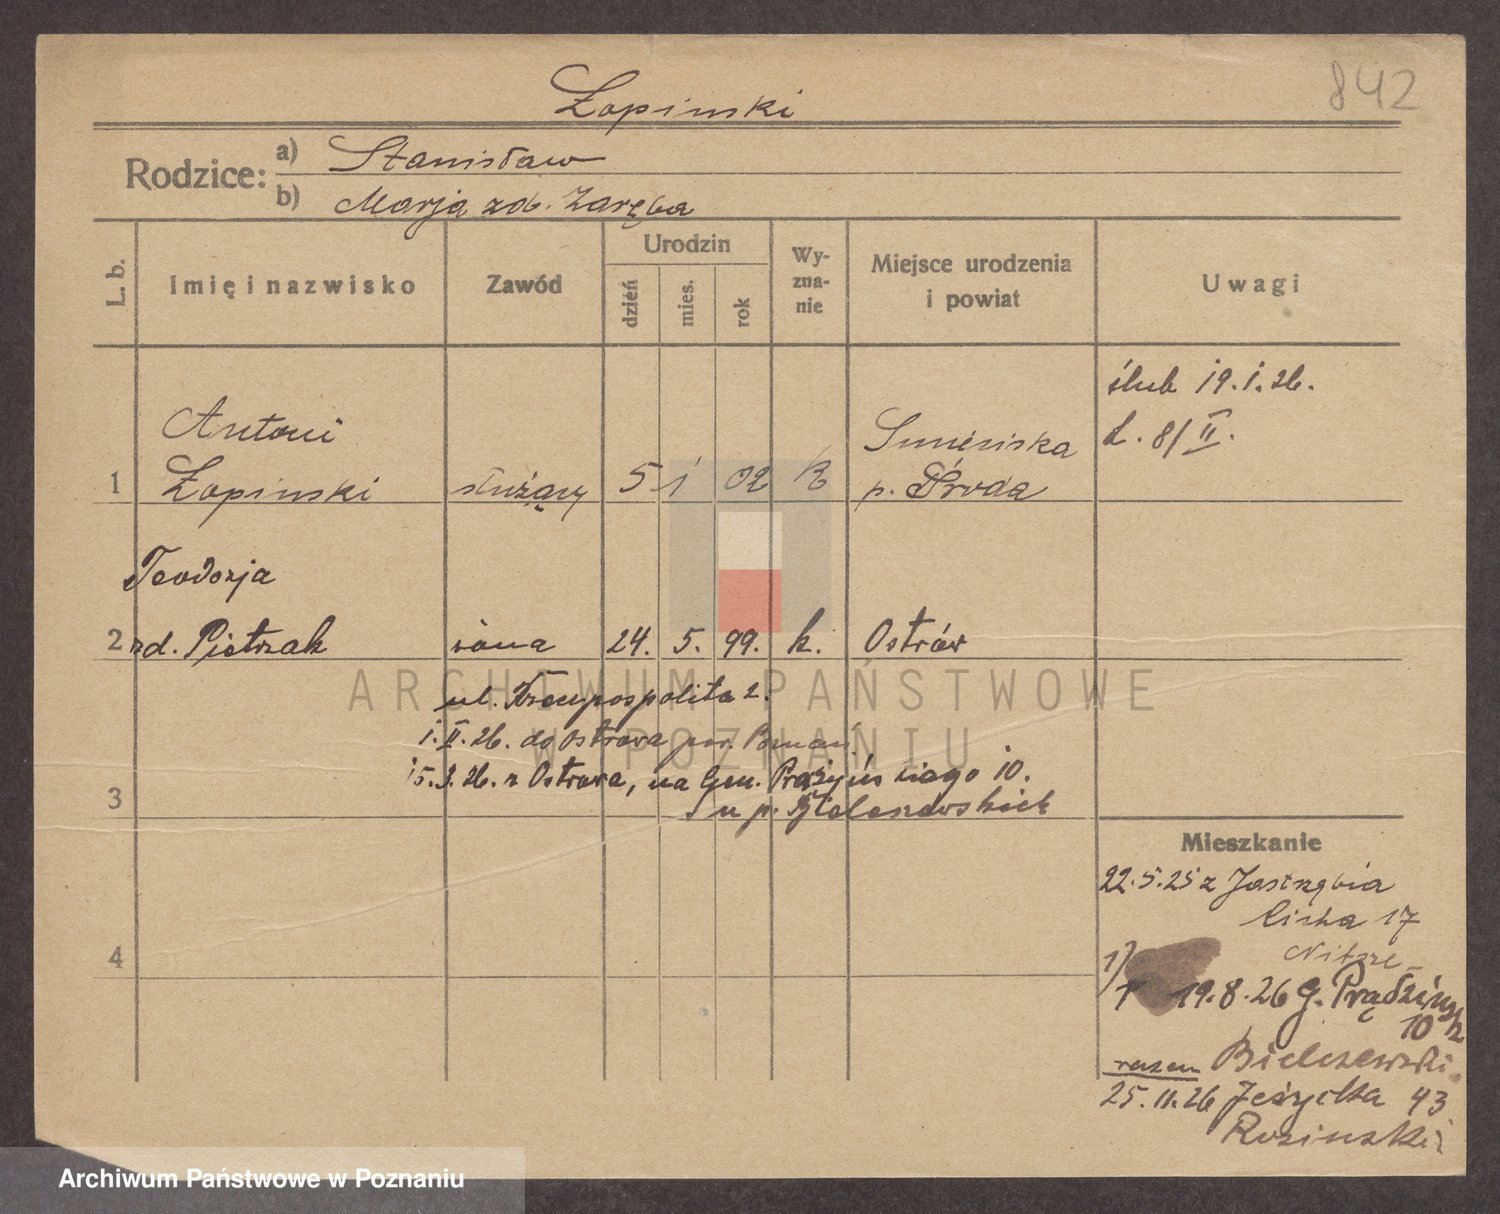 842
Łopinski
Rodzice:
a) Stanisław
b) Marja zd. Zaręba
L. b.
Imię i nazwisko
Zawód
Urodzin
dzień
mies.
rok
Wy-
zna-
nie
Miejsce urodzenia
i powiat
Uwagi
ślub 19.1.26.
L. 8/II.
1
Antoni
Łopinski
służący
5 1 02
Śnieciska
p. Środa
2
Teodozja
zd. Pietrzak
żona
24. 5. 99. k.
Ostrów
ul. Rzeczypospolita 2.
1.II.26. do Ostrowa pow. Poznań
15.3.26. z Ostrowa, na Gen. Prądzyńskiego 10.
u p. Bielaszewskich
3
4
Mieszkanie
22.5.25 z Jastrzębia
Licha 17
Nitsze
1)
19.8.26 G. Prądzińsk
10
razem Bielszewski.
25.11.26 Jeżycka 43
Rosinski
ARCHIWUM PAŃSTWOWE
W POZNANIU
Archiwum Państwowe w Poznaniu